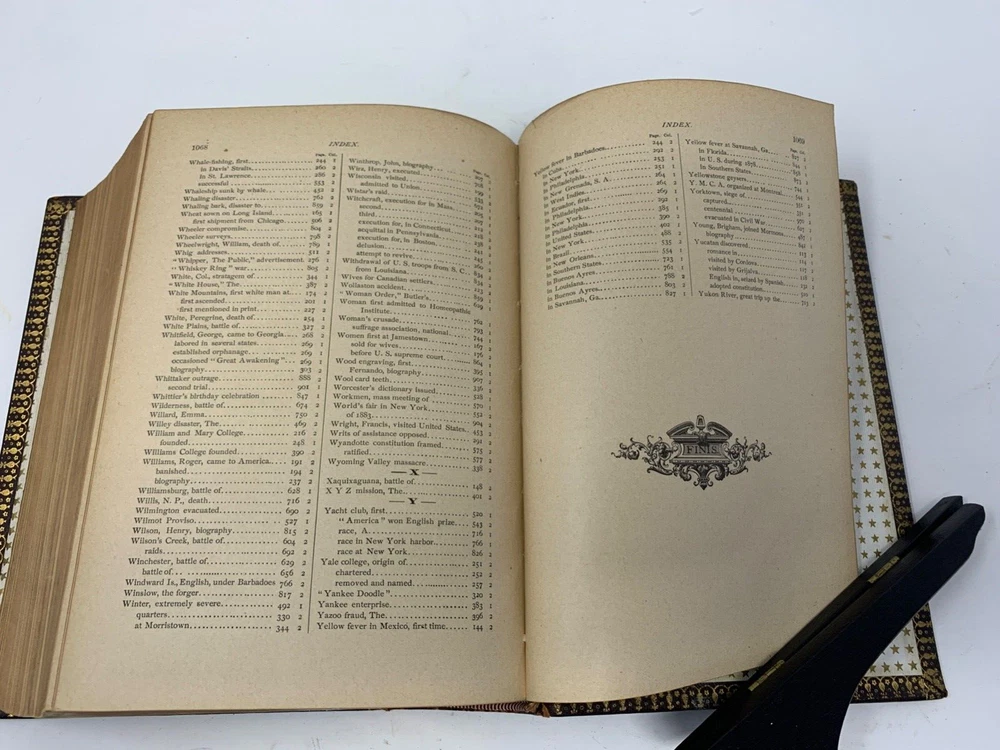 1068
INDEX.
Page. Col.
Whale-fishing, first 244 1
in Davis' Straits 260 2
in St. Lawrence 286 2
successful 553 1
Whaleship sunk by whale 452 2
Whaling disaster 762 2
Whaling bark, disaster to 859 2
Wheat sown on Long Island 163 1
first shipment from Chicago 506 2
Wheeler compromise 804 2
Wheeler surveys 798 2
Wheelwright, William, death of 789 1
Whig addresses 511 2
"Whipper, The Public," advertisement 276 1
"Whiskey Ring" war 805 2
White, Col., stratagem of 344 1
"White House," The 387 2
White Mountains, first white man at 174 2
first ascended 201 1
first mentioned in print 227 2
White, Peregrine, death of 254 1
White Plains, battle of 327 2
Whitfield, George, came to Georgia 268 2
labored in several states 269 1
established orphanage 269 1
occasioned "Great Awakening" 269 1
biography 303 2
Whittaker outrage 888 2
second trial 901 1
Whittier's birthday celebration 847 1
Wilderness, battle of 674 2
Willard, Emma 750 2
Willey disaster, The 469 2
William and Mary College 216 2
founded 248 1
Williams College founded 390 2
Williams, Roger, came to America 191 2
banished 194 2
biography 237 2
Williamsburg, battle of 628 1
Willis, N. P., death 716 2
Wilmington evacuated 690 2
Wilmot Proviso 527 1
Wilson, Henry, biography 815 2
Wilson's Creek, battle of 604 2
raids 692 2
Winchester, battle of 629 2
battle of 656 2
Windward Is., English, under Barbadoes 766 2
Winslow, the forger 817 2
Winter, extremely severe 492 1
quarters 330 2
at Morristown 344 2
Page. Col.
Winthrop, John, biography
Wirz, Henry, executed
Wisconsin visited
admitted to Union
Wistar's raid
Witchcraft, execution for in Mass.
second
third
execution for, in Connecticut
acquittal in Pennsylvania
execution for, in Boston
delusion
attempt to revive
Withdrawal of U. S. troops from S. C.
from Louisiana
Wives for Canadian settlers
Wollaston accident
"Woman Order," Butler's
Woman first admitted to Homeopathic
Institute
Woman's crusade
suffrage association, national 793
Women first at Jamestown 744
sold for wives 167
before U. S. supreme court 176
Wood engraving, first 864
Fernando, biography 395
Wool card teeth 907
Worcester's dictionary issued 236
Workmen, mass meeting of 528
World's fair in New York 570
of 1883 552
Wright, Francis, visited United States 904
Writs of assistance opposed 453
Wyandotte constitution framed 291
ratified 575
Wyoming Valley massacre 577
338
X
Xaquixaguana, battle of 148 2
X Y Z mission, The 401 2
Y
Yacht club, first 520 1
"America" won English prize 543 2
race, A 716 1
race in New York harbor 766 1
race at New York 826 2
Yale college, origin of 251 1
chartered 252 2
removed and named 257 2
"Yankee Doodle" 320 2
Yankee enterprise 383 1
Yazoo fraud, The 396 2
Yellow fever in Mexico, first time 144 2
INDEX.
1069
Page. Col.
Yellow fever in Barbadoes 244 2
in Cuba 292 2
in New York 253 1
in Philadelphia 253 1
in New Grenada, S. A. 264 1
in West Indies 264 2
in Ecuador, first 269 1
in Philadelphia 292 1
in New York 385 1
in Philadelphia 390 2
in United States 402 1
in New York 488 2
in Brazil 535 2
in New Orleans 554 1
in Southern States 723 1
in Buenos Ayres 761 1
in Louisiana 768 2
in Buenos Ayres 803 2
in Savannah, Ga. 827 1
Page. Col.
Yellow fever at Savannah, Ga.
in Florida
in U. S. during 1878
in Southern States
Yellowstone geysers
Y. M. C. A. organized at Montreal
Yorktown, siege of
captured
centennial
evacuated in Civil War
Young, Brigham, joined Mormons
biography
Yucatan discovered
romance in
visited by Cordova
visited by Grijalva
English in, seized by Spanish
adopted constitution
Yukon River, great trip up the
FINIS.